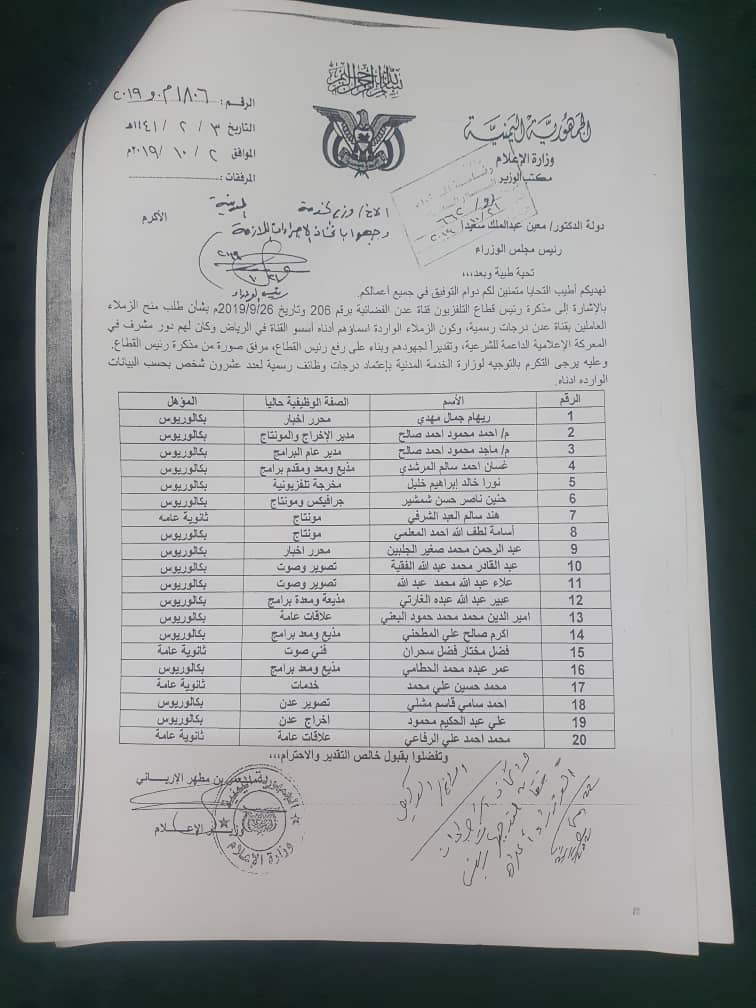 بسم الله الرحمن الرحيم
الجمهورية اليمنية
وزارة الإعلام
مكتب الوزير
الرقم: ١٨٠٦ م.و ٢٠١٩
التاريخ ٣ / ٢ / ١٤٤١هـ
الموافق ٢ / ١٠ / ٢٠١٩م
المرفقات:
الاخ/ وزير الخدمة المدنية الأكرم
وجهوا باتخاذ الاجراءات اللازمة
رئيس الوزراء
دولة الدكتور/ معين عبدالملك سعيد
رئيس مجلس الوزراء
تحية طيبة وبعد،،،
نهديكم أطيب التحايا متمنين لكم دوام التوفيق في جميع أعمالكم.
بالإشارة إلى مذكرة رئيس قطاع التلفزيون قناة عدن الفضائية برقم 206 وتاريخ 2019/9/26م بشأن طلب منح الزملاء
العاملين بقناة عدن درجات رسمية، وكون الزملاء الواردة اسماؤهم أدناه أسسو القناة في الرياض وكان لهم دور مشرف في
المعركة الإعلامية الداعمة للشرعية، وتقديراً لجهودهم وبناء على رفع رئيس القطاع، مرفق صورة من مذكرة رئيس القطاع.
وعليه يرجى التكرم بالتوجيه لوزارة الخدمة المدنية بإعتماد درجات وظائف رسمية لعدد عشرون شخص بحسب البيانات
الوارده ادناه.
الرقم الأسم الصفة الوظيفية حالياً المؤهل
1 ريهام جمال مهدي محرر اخبار بكالوريوس
2 م/ احمد محمود احمد صالح مدير الإخراج والمونتاج بكالوريوس
3 م/ ماجد محمود احمد صالح مدير عام البرامج بكالوريوس
4 غسان احمد سالم المرشدي مذيع ومعد ومقدم برامج بكالوريوس
5 نورا خالد إبراهيم خليل مخرجة تلفزيونية بكالوريوس
6 حنين ناصر حسن شمشير جرافيكس ومونتاج بكالوريوس
7 هند سالم العبد الشرفي مونتاج ثانوية عامه
8 أسامة لطف الله احمد المعلمي مونتاج بكالوريوس
9 عبد الرحمن محمد صغير الجلبين محرر اخبار بكالوريوس
10 عبد القادر محمد عبد الله الفقية تصوير وصوت بكالوريوس
11 علاء عبد الله محمد عبد الله تصوير وصوت بكالوريوس
12 عبير عبد الله عبده الغارتي مذيعة ومعدة برامج بكالوريوس
13 امير الدين محمد محمد حمود اليعني علاقات عامة بكالوريوس
14 اكرم صالح علي المطحني مذيع ومعد برامج بكالوريوس
15 فضل مختار فضل سحران فني صوت ثانوية عامة
16 عمر عبده محمد الحطامي مذيع ومعد برامج بكالوريوس
17 محمد حسين علي محمد خدمات ثانوية عامة
18 احمد سامي قاسم مشلي تصوير عدن بكالوريوس
19 علي عبد الحكيم محمود اخراج عدن بكالوريوس
20 محمد احمد علي الرفاعي علاقات عامة ثانوية عامة
وتفضلوا بقبول خالص التقدير والاحترام،،،
بن مطهر الإرياني
وزير الإعلام
وزارة الإعلام
الاخ/ الوكيل